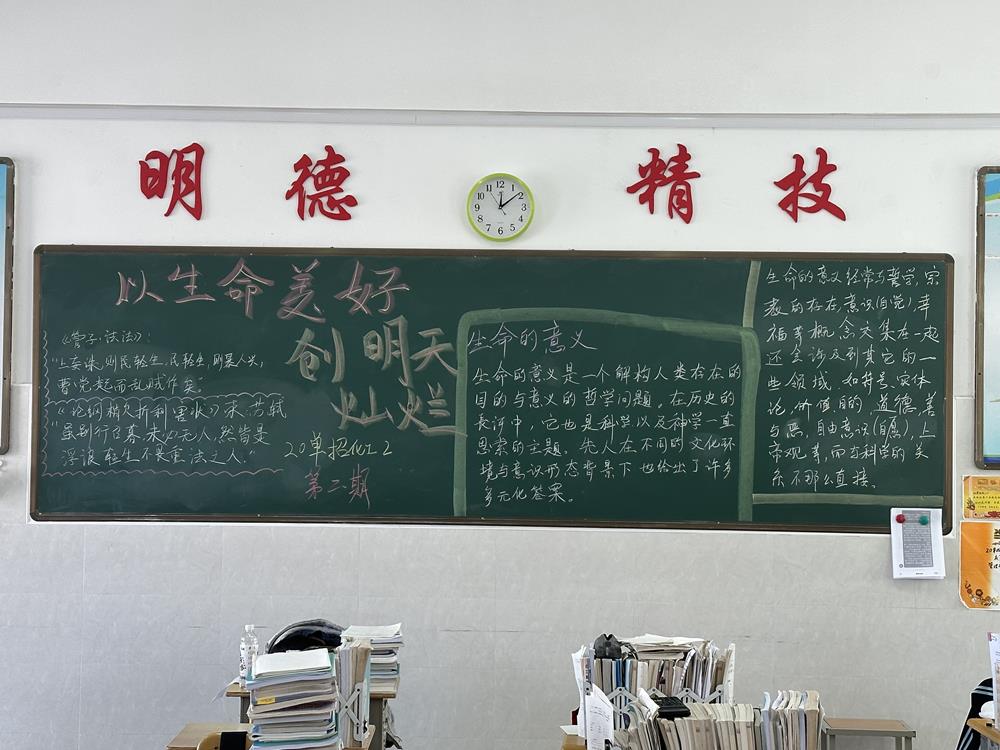 明德 精技
以生命美好
创明天
灿烂
《管子·法法》:
"上妄诛,则民轻生,民轻生,则暴人兴,
曹党起而乱贼作矣"
《论纲梢欠折利害状》宋·苏轼
"虽刖行召募,未必无人,然皆是
浮浪轻生不畏重法之人"
20单招化工2
第二期
生命的意义
生命的意义是一个解构人类存在的
目的与意义的哲学问题,在历史的
長河中,它也是科学以及神学一直
思索的主题。先人在不同的文化环
境与意识形态背景下也给出了许多
多元化答案。
生命的意义经常与哲学,宗
教的存在,意识(自觉)幸
福等概念交集在一起
还会涉及到其它的一
些领域,如符号,实体
论,价值目的,道德,善
与恶,自由意识(自愿),上
帝观等,而与科学的关
系不那么直接。